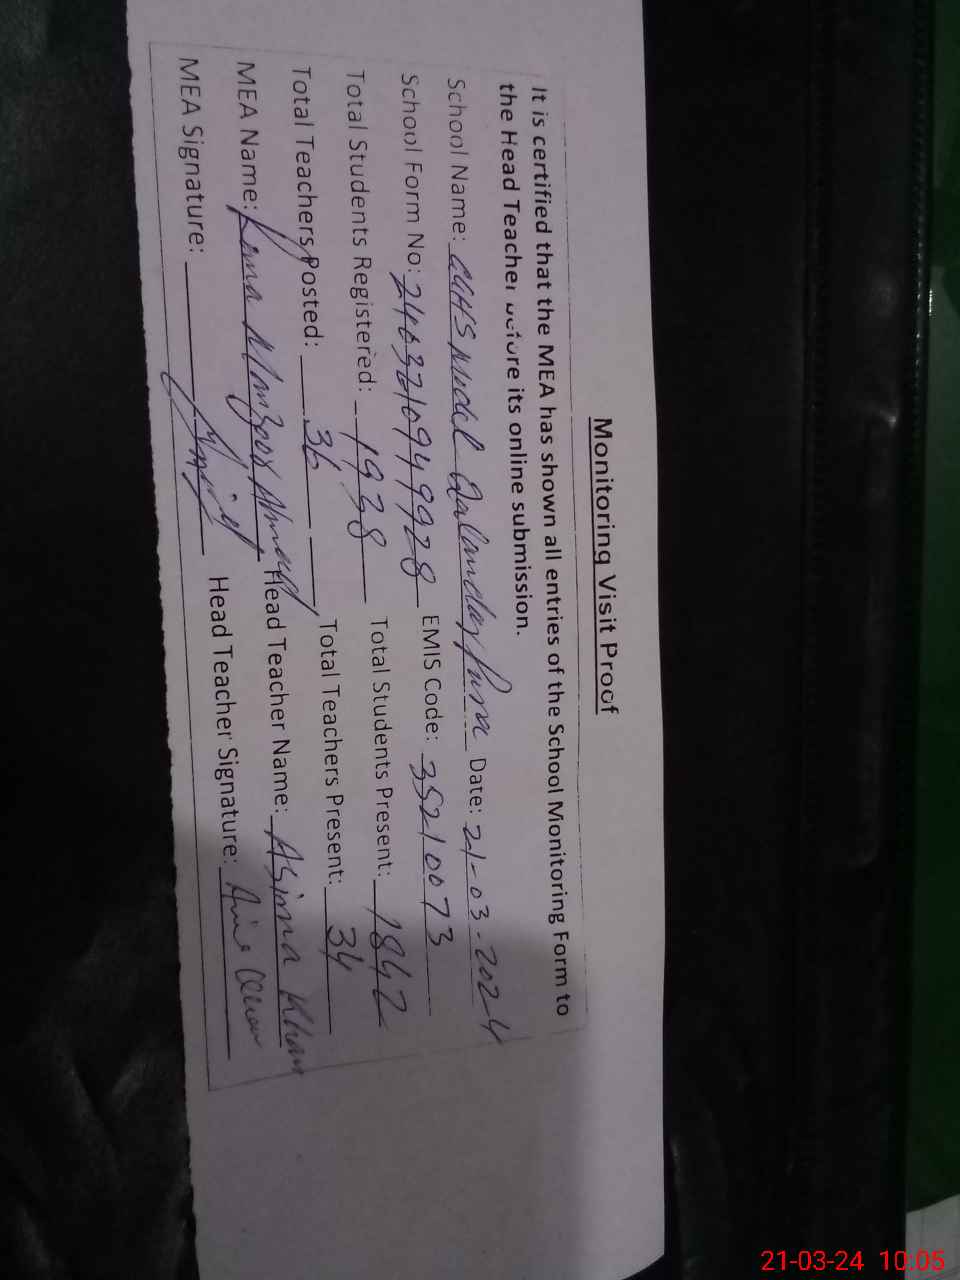 Monitoring Visit Proof
It is certified that the MEA has shown all entries of the School Monitoring Form to
the Head Teacher before its online submission.
School Name: GGHS Model Qallandar pura Date: 21-03-2024
School Form No: 24032109499928 EMIS Code: 35210073
Total Students Registered: 1938 Total Students Present: 1842
Total Teachers Posted: 36 Total Teachers Present: 34
MEA Name: Rana Manzoor Ahmad Head Teacher Name: Asima Khan
MEA Signature: Head Teacher Signature:
21-03-24 10:05